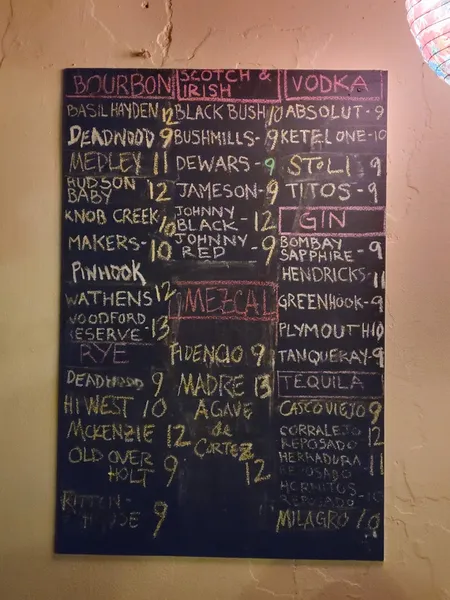 BOURBON
BASIL HAYDEN 12
DEADWOOD 9
MEDLEY 11
HUDSON
BABY 12
KNOB CREEK 10
MAKERS- 10
PINHOOK
WATHENS 12
WOODFORD
RESERVE- 13
RYE
DEADWOOD 9
HI WEST 10
MCKENZIE 12
OLD OVER
HOLT 9
RITTEN-
HOUSE 9
SCOTCH &
IRISH
BLACK BUSH 10
BUSHMILLS- 9
DEWARS- 9
JAMESON- 9
JOHNNY
BLACK - 12
JOHNNY
RED - 9
MEZCAL
FIDENCIO 9
MADRE 13
AGAVE
de
CORTEZ
12
VODKA
ABSOLUT- 9
KETEL ONE-10
STOLI 9
TITOS- 9
GIN
BOMBAY
SAPPHIRE- 9
HENDRICKS- 11
GREENHOOK- 9
PLYMOUTH 10
TANQUERAY- 9
TEQUILA
CASCO VIEJO 9
CORRALEJO
REPOSADO 12
HERRADURA
REPOSADO 11
HORNITOS-
REPOSADO 10
MILAGRO 10